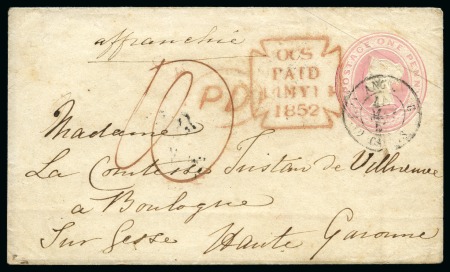 affranchie
OCS
PAID
1 MY 1
1852
POSTAGE ONE PENNY
PD
10
ANGL.
Madame
La Comtesse Tristan de Villneuve
a Boulogne
Sur Gesse Haute Garonne